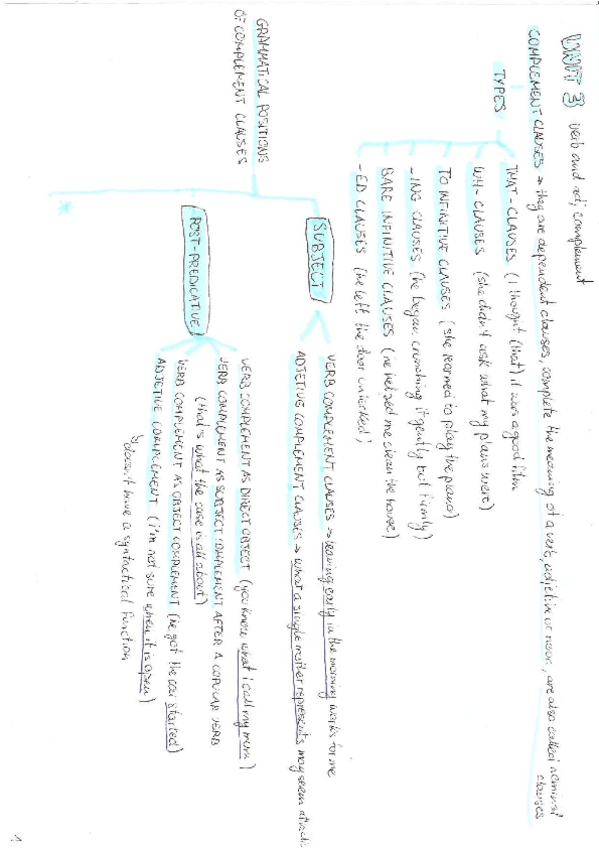 UNIT 3 verb and adj complement
COMPLEMENT CLAUSES → they are dependent clauses, complete the meaning of a verb, adjective or noun, are also called nominal
clauses
TYPES
THAT-CLAUSES (I thought (that) it was a good film
WH-CLAUSES (she didn't ask what my plans were)
TO INFINITIVE CLAUSES (she learned to play the piano)
-ING CLAUSES (he began crunching it gently but firmly)
BARE INFINITIVE CLAUSES (he helped me clean the house)
-ED CLAUSES (he left the door unlocked)
GRAMMATICAL POSITIONS
OF COMPLEMENT CLAUSES
SUBJECT
VERB COMPLEMENT CLAUSES → leaving early in the morning works for me
ADJETIVE COMPLEMENT CLAUSES → what a single mother represents may seem
POST-PREDICATIVE
VERB COMPLEMENT AS DIRECT OBJECT (you know what I call my mum)
VERB COMPLEMENT AS SUBJECT COMPLEMENT AFTER A COPULAR VERB
(that's what the case is all about)
VERB COMPLEMENT AS OBJECT COMPLEMENT (he got the car started)
ADJETIVE COMPLEMENT (I'm not sure when it is open)
doesn't have a syntactical function
*
1